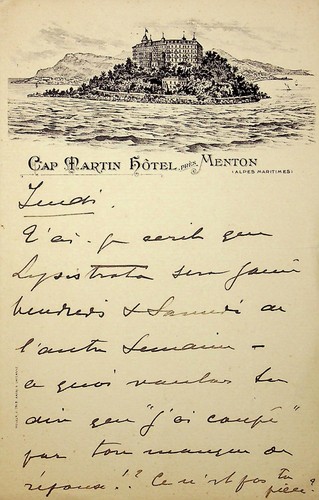 CAP MARTIN HÔTEL PRÈS MENTON
(ALPES MARITIMES)
Lundi.
T'ai-je écrit que
Lysistrata sera joué
Vendredi & Samedi de
l'autre Semaine -
a quoi voulais tu
dire que "j'ai coupé"
par ton manque de
réponse!? Ce n'est pas ta
pièce?